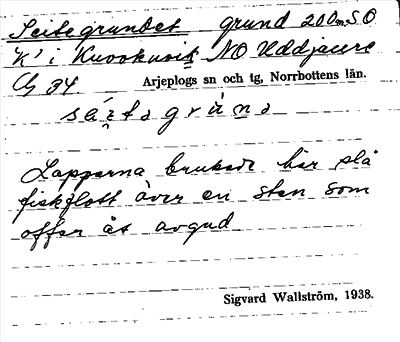 Seitegrundet grund 200m SO
K' i Kuookuoik NO Uddjaure
Cg 34 Arjeplogs sn och tg, Norrbottens län.
Lapparna brukade här slå
fiskflott över en sten som
offer åt avgud
Sigvard Wallström, 1938.